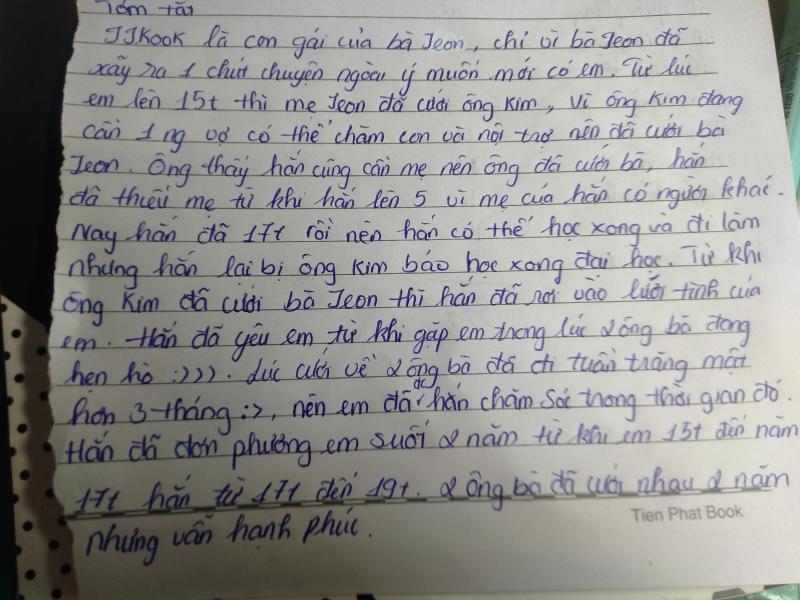 Tóm tắt
JJKook là con gái của bà Jeon, chỉ vì bà Jeon đã
xãy ra 1 chút chuyện ngoài ý muốn mới có em. Từ lúc
em lên 15t thì mẹ Jeon đã cưới ông Kim, vì ông Kim đang
cần 1 ng vợ có thể chăm con và nội trợ nên đã cưới bà
Jeon. Ông thấy hắn cũng cần mẹ nên ông đã cưới bà, hắn
đã thiếu mẹ từ khi hắn lên 5 vì mẹ của hắn có người khác.
Nay hắn đã 17t rồi nên hắn có thể học xong và đi làm
nhưng hắn lại bị ông Kim bảo học xong đại học. Từ khi
ông Kim đã cưới bà Jeon thì hắn đã rơi vào lưới tình của
em. Hắn đã yêu em từ khi gặp em trong lúc 2 ông bà đang
hẹn hò :))). Lúc cưới về 2 ông bà đã đi tuần trăng mật
hơn 3 tháng :>, nên em đã đc hắn chăm sóc trong thời gian đó.
Hắn đã đơn phương em suốt 2 năm từ khi em 15t đến năm
17t hắn từ 17t đến 19t. 2 ông bà đã cưới nhau 2 năm
nhưng vẫn hạnh phúc.
Tien Phat Book